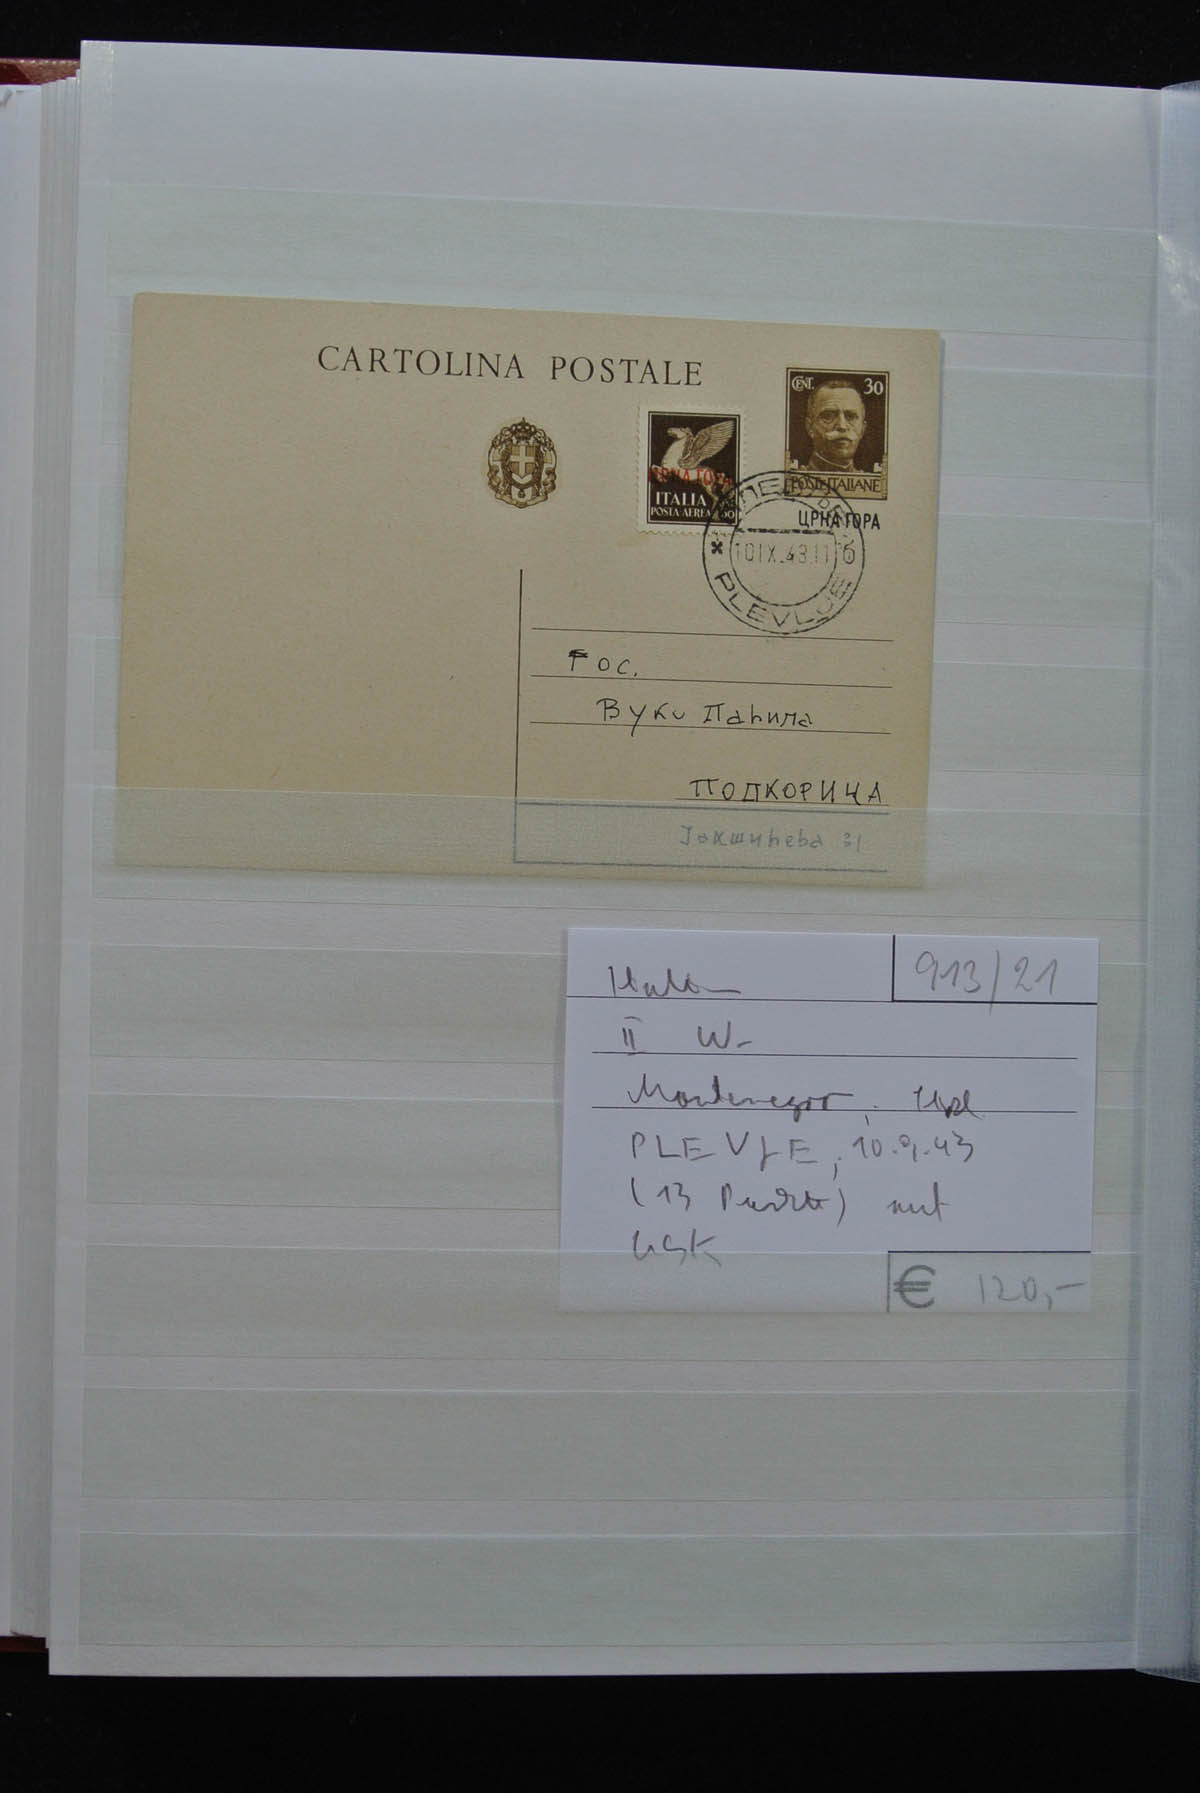 CARTOLINA POSTALE
CENT. 30
POSTE ITALIANE
ЦРНА ГОРА
ЦРНА ГОРА
ITALIA
POSTA AEREA 50
10 IX. 43. 11 б
PLEVLJE
Гос.
Вуки Паћина
ПОДКОРИЦА
Јакшићева 31
913/21
Italien
II W-
Montenegro,
PLEVJE, 10.9.43
(13 Punkte) mit
€ 120,-